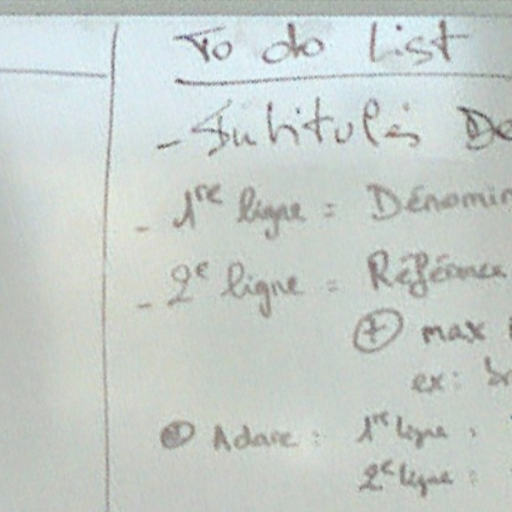 To do List
- Intitulés De
- 1re ligne = Dénomin
- 2e ligne = Référence
+ max
ex:
Adare : 1re ligne :
2e ligne :